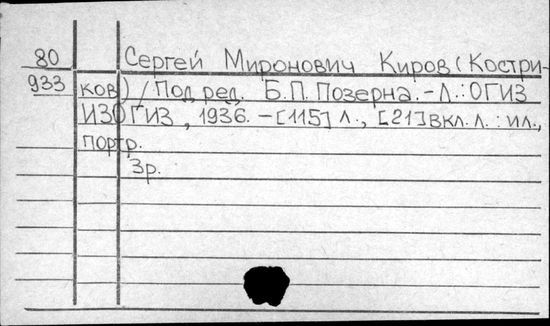 80 Сергей Миронович Киров (Костри-
933 ков) / Под ред. Б.П. Позерна. - Л.: ОГИЗ
ИЗОГИЗ, 1936. - [115] л., [21] вкл. л.: ил.,
портр.
3р.